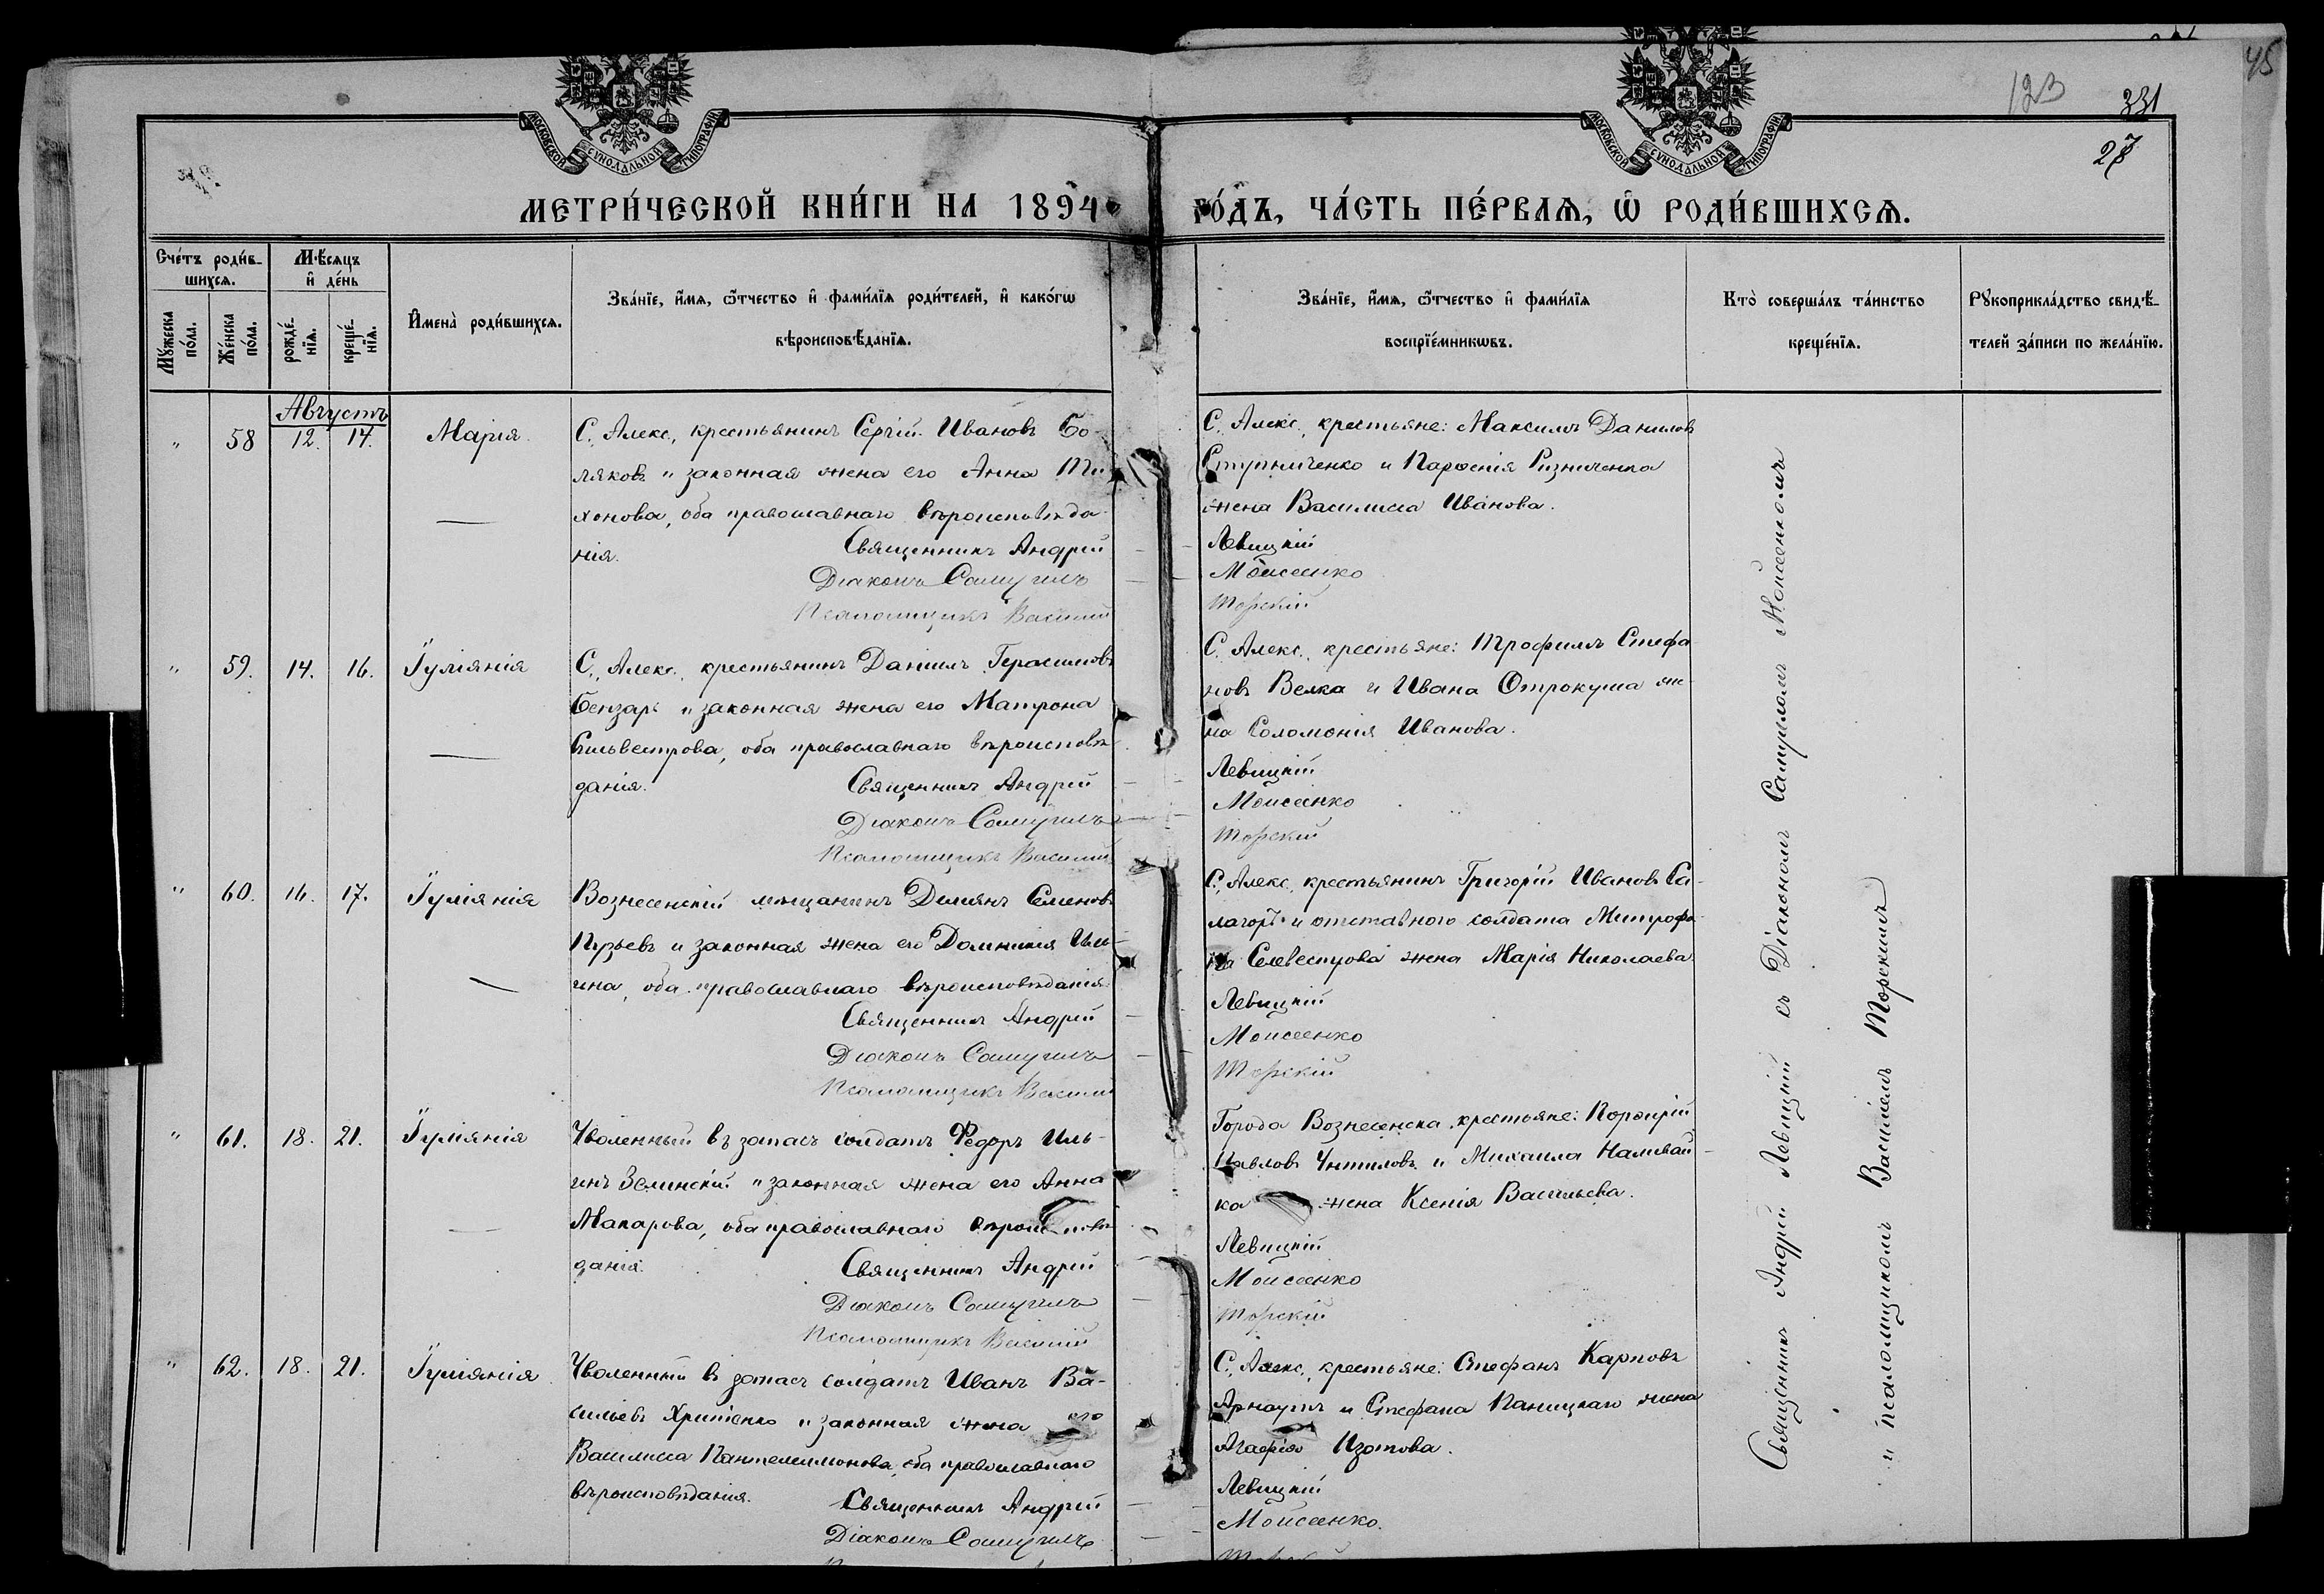 45
123
331
27
МОСКОВСКОЙ СѴНОДАЛЬНОЙ ТИПОГРАФІИ
МОСКОВСКОЙ СѴНОДАЛЬНОЙ ТИПОГРАФІИ
МЕТРИ́ЧЕСКОЙ КНИ́ГИ НА 1894 ГО́ДЪ, ЧА́СТЬ ПЕ́РВАѦ, Ѡ҆ РОДИ́ВШИХСѦ.
Сче́тъ роди́в-
шихсѧ.
Мꙋ́жеска по́ла.
Же́нска по́ла.
Мѣ́сяцъ
и҆ де́нь
рожде́-
нїѧ.
креще́-
нїѧ.
И҆мена̀ роди́вшихсѧ.
Зва́нїе, и҆́мѧ, ѻ҆́тчество и҆ фами́лїѧ роди́телей, и҆ како́гѡ
вѣроисповѣ́данїѧ.
Зва́нїе, и҆́мѧ, ѻ҆́тчество и҆ фами́лїѧ
воспрїе́мникѡвъ.
Кто̀ соверша́лъ та́инство
креще́нїѧ.
Рꙋкоприкла́дство свидѣ́-
телей за́писи по жела́нїю.
Августъ
" 58 12. 14. Марія
С. Алекс., крестьянинъ Сергій Ивановъ Бо-
ляковъ и законная жена его Анна Ти-
хонова, оба православнаго вѣроисповѣда-
нія.
Священникъ Андрей
Діаконъ Самуилъ
Псаломщикъ Василій
С. Алекс., крестьяне: Максимъ Даниловъ
Ступниченко и Парфенія Ризниченка
жена Василиса Иванова.
Левицкій
Моисеенко
Торскій
" 59. 14. 16. Іуліянія
С. Алекс. крестьянинъ Даніилъ Герасимовъ
Бензарь и законная жена его Матрона
Сильвестрова, оба православнаго вѣроисповѣ-
данія.
Священникъ Андрей
Діаконъ Самуилъ
Псаломщикъ Василій
С. Алекс., крестьяне: Трофимъ Стефа-
новъ Велка и Ивана Отрокуша же-
на Соломонія Иванова.
Левицкій
Моисеенко
Торскій
" 60. 16. 17. Іуліянія
Вознесенскій мѣщанинъ Деміянъ Семеновъ
Пузьевъ и законная жена его Домникія Иль-
ина, оба православнаго вѣроисповѣданія.
Священникъ Андрей
Діаконъ Самуилъ
Псаломщикъ Василій
С. Алекс., крестьянинъ Григорій Ивановъ Са-
лагоръ и отставного солдата Митрофа-
на Селевестрова жена Марія Николаева
Левицкій
Моисеенко
Торскій
" 61. 18. 21. Іуліянія
Уволенный въ запасъ солдатъ Ѳедоръ Иль-
инъ Зелинскій и законная жена его Анна
Макарова, оба православнаго вѣроисповѣ-
данія.
Священникъ Андрей
Діаконъ Самуилъ
Псаломщикъ Василій
Города Вознесенска крестьяне: Порфирій
Павловъ Унтиловъ и Михаила Наливай-
ка жена Ксенія Васильева.
Левицкій
Моисеенко
Торскій
" 62. 18. 21. Іуліянія
Уволенный въ запасъ солдатъ Иванъ Ва-
сильевъ Христенко и законная жена его
Василиса Пантелеимонова, оба православнаго
вѣроисповѣданія.
Священникъ Андрей
Діаконъ Самуилъ
С. Алекс., крестьяне: Стефанъ Карповъ
Арнаутъ и Стефана Паницкаго жена
Агафія Изотова.
Левицкій
Моисеенко.
Священникъ Андрей Левицкій съ Діакономъ Самуиломъ Моисеенкомъ
и псаломщикомъ Василіемъ Торскимъ